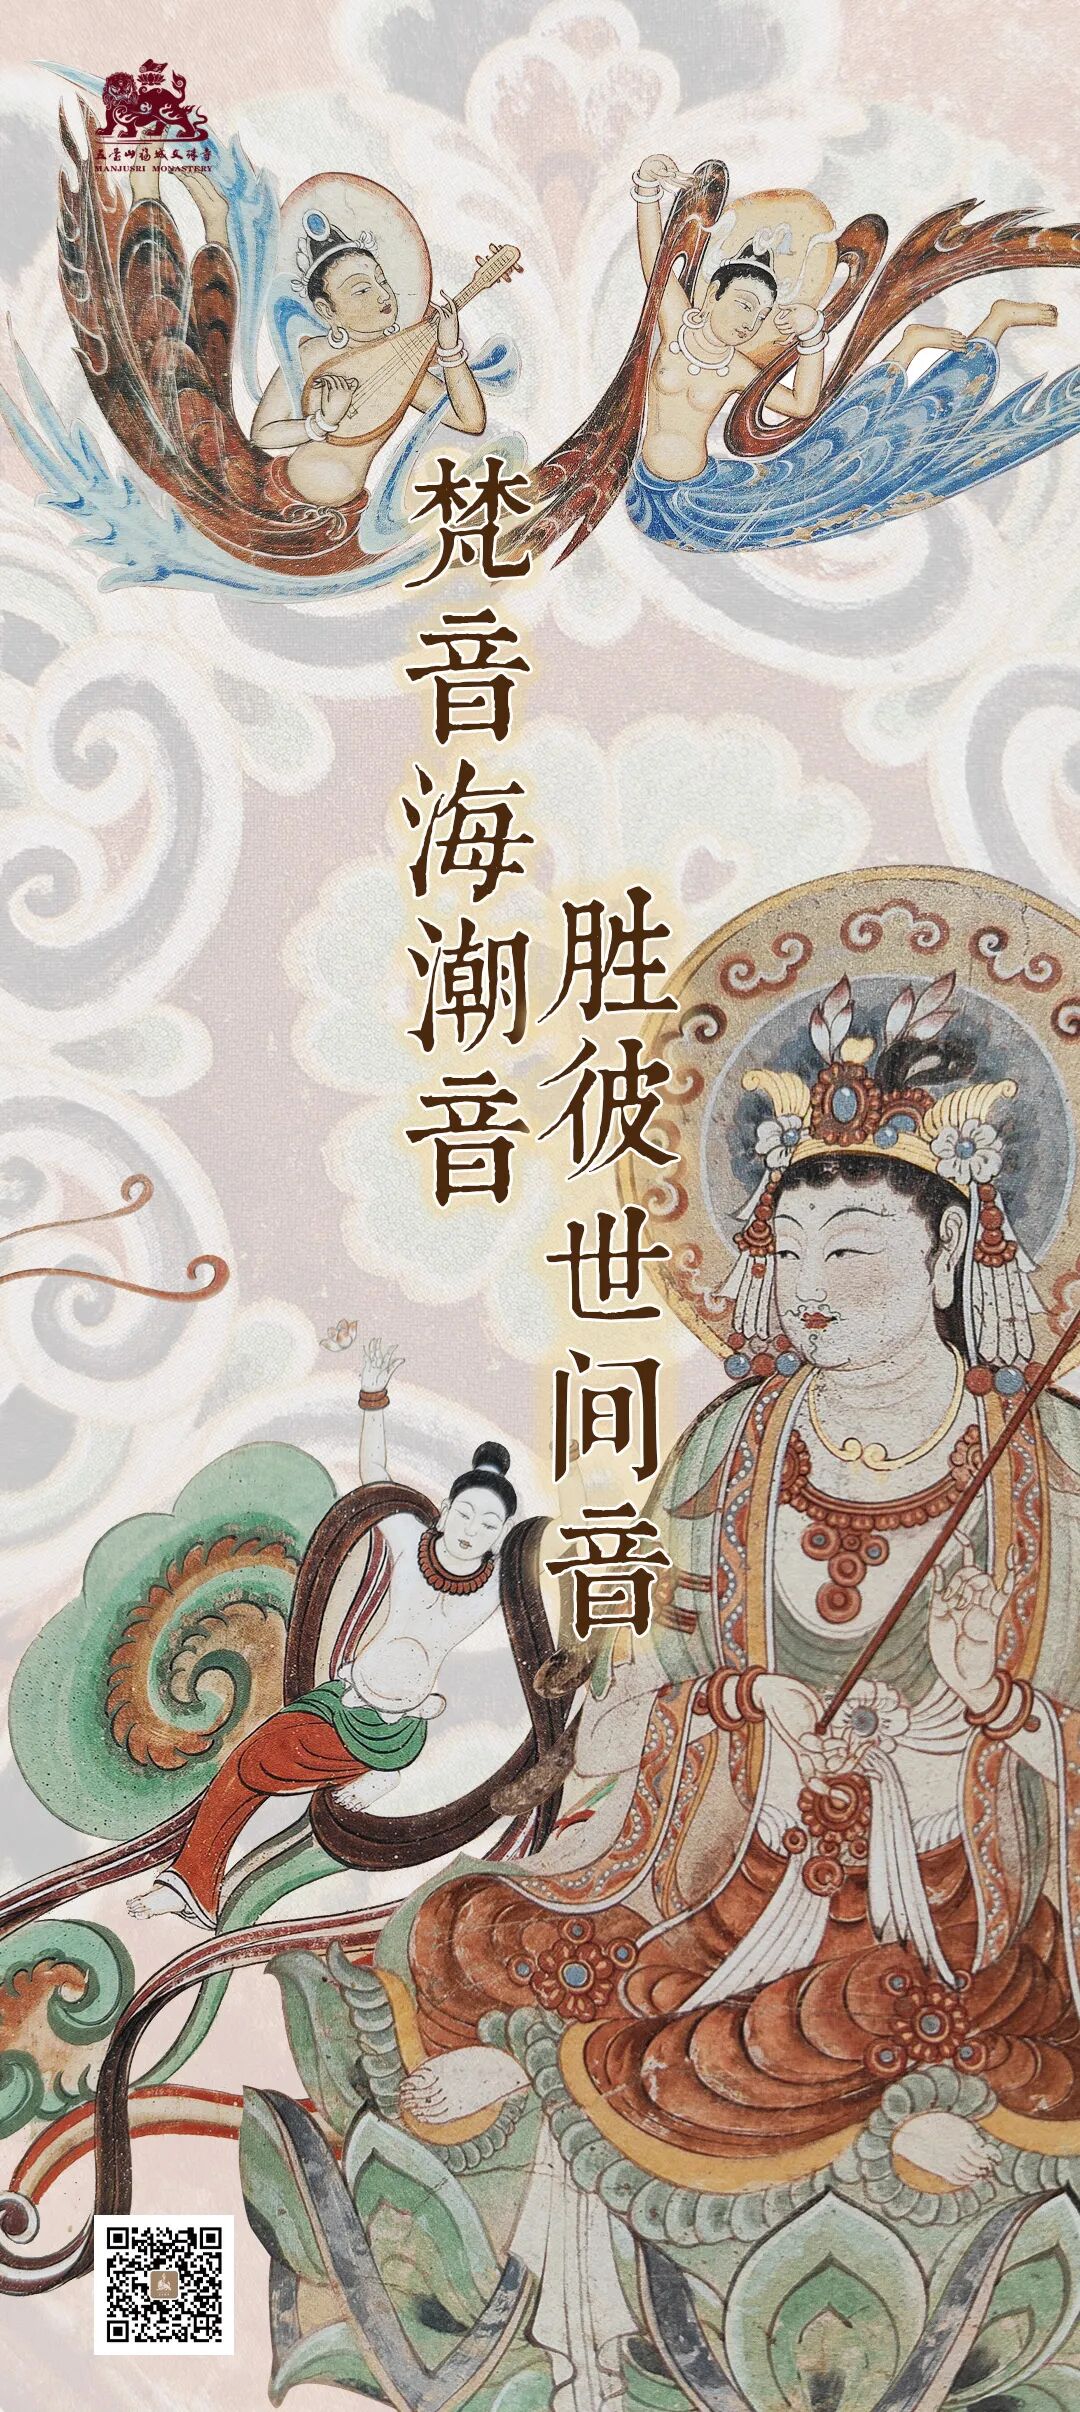 五台山福城文殊寺
MANJUSRI MONASTERY
梵音海潮音
胜彼世间音